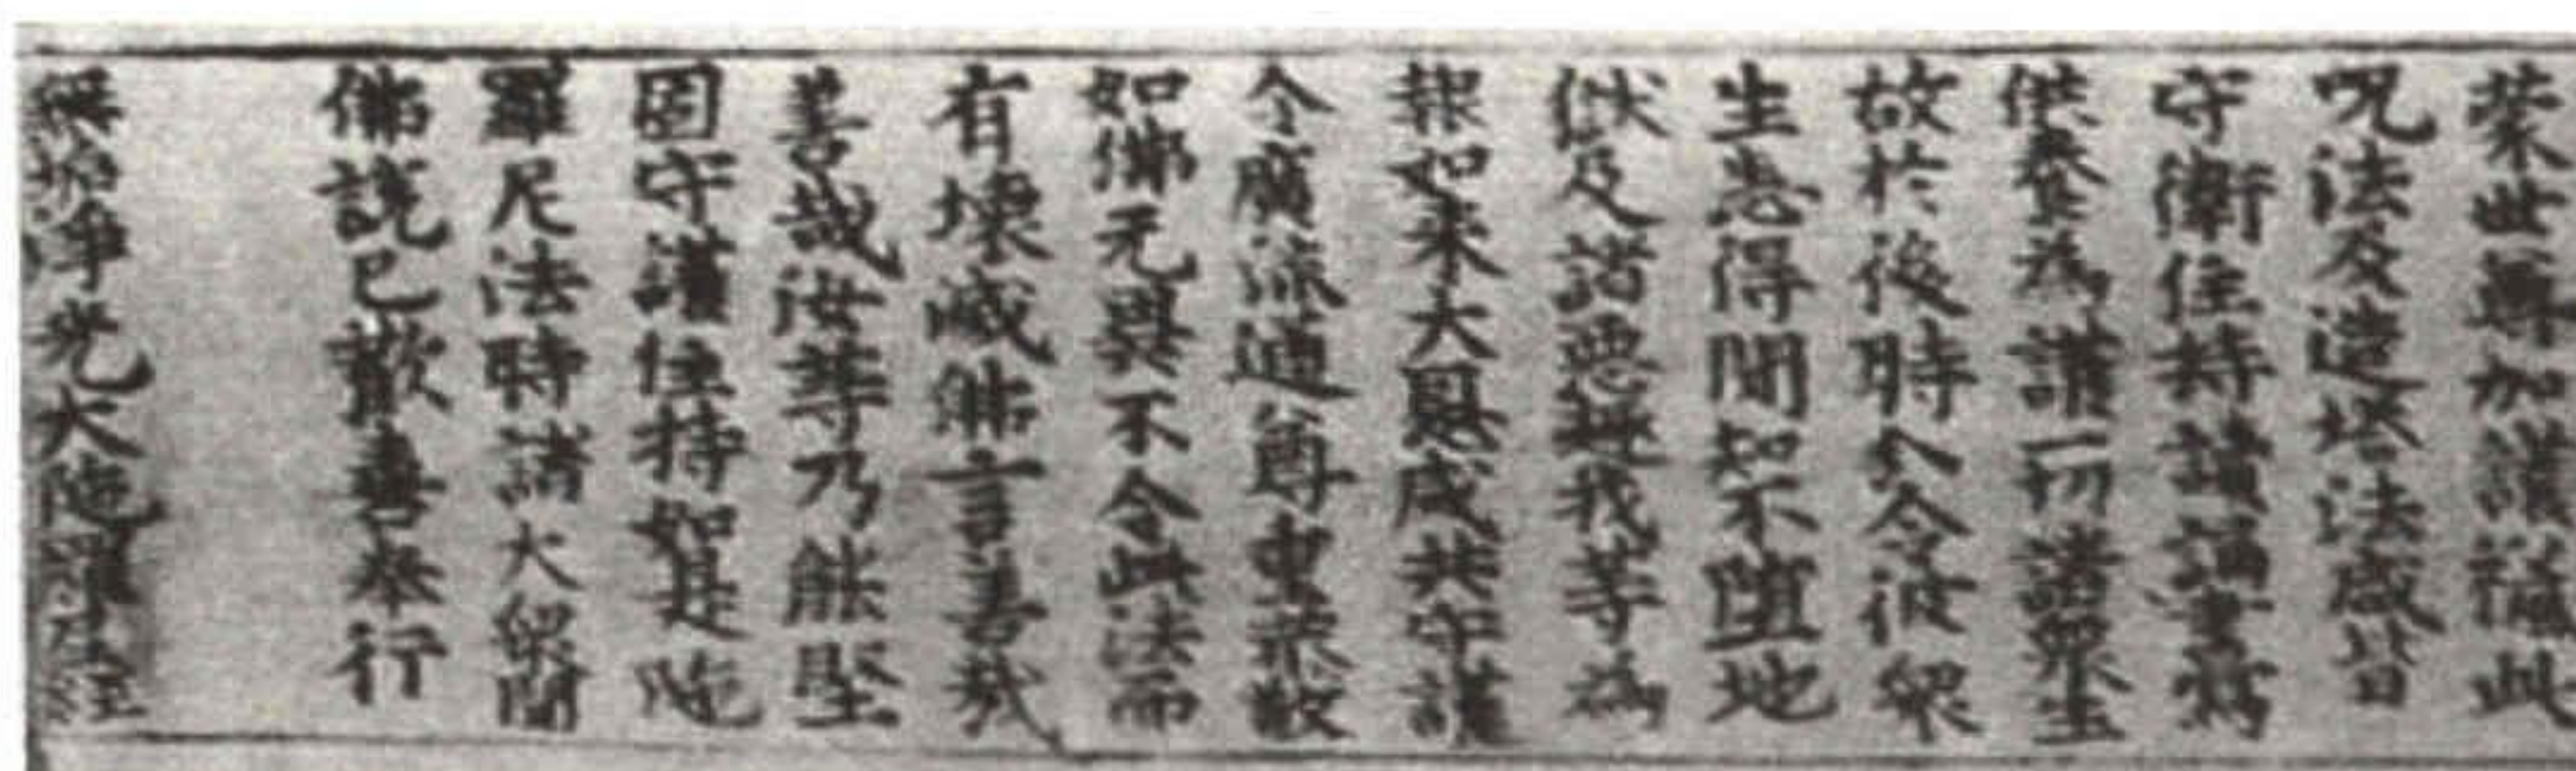 蒙世尊加護獲此
呪法及造塔法咸皆
守衛住持讀誦書寫
供養為護一切諸衆生
故於後時分令彼衆
生悉得聞知不墮地
獄及諸惡趣我等為
報如来大恩咸共守護
令廣流通尊重恭敬
如佛无異不令此法而
有壞滅佛言善哉
善哉汝等乃能堅
固守護住持如是陁
羅尼法時諸大衆聞
佛說已歡喜奉行
無垢淨光大陁羅尼經